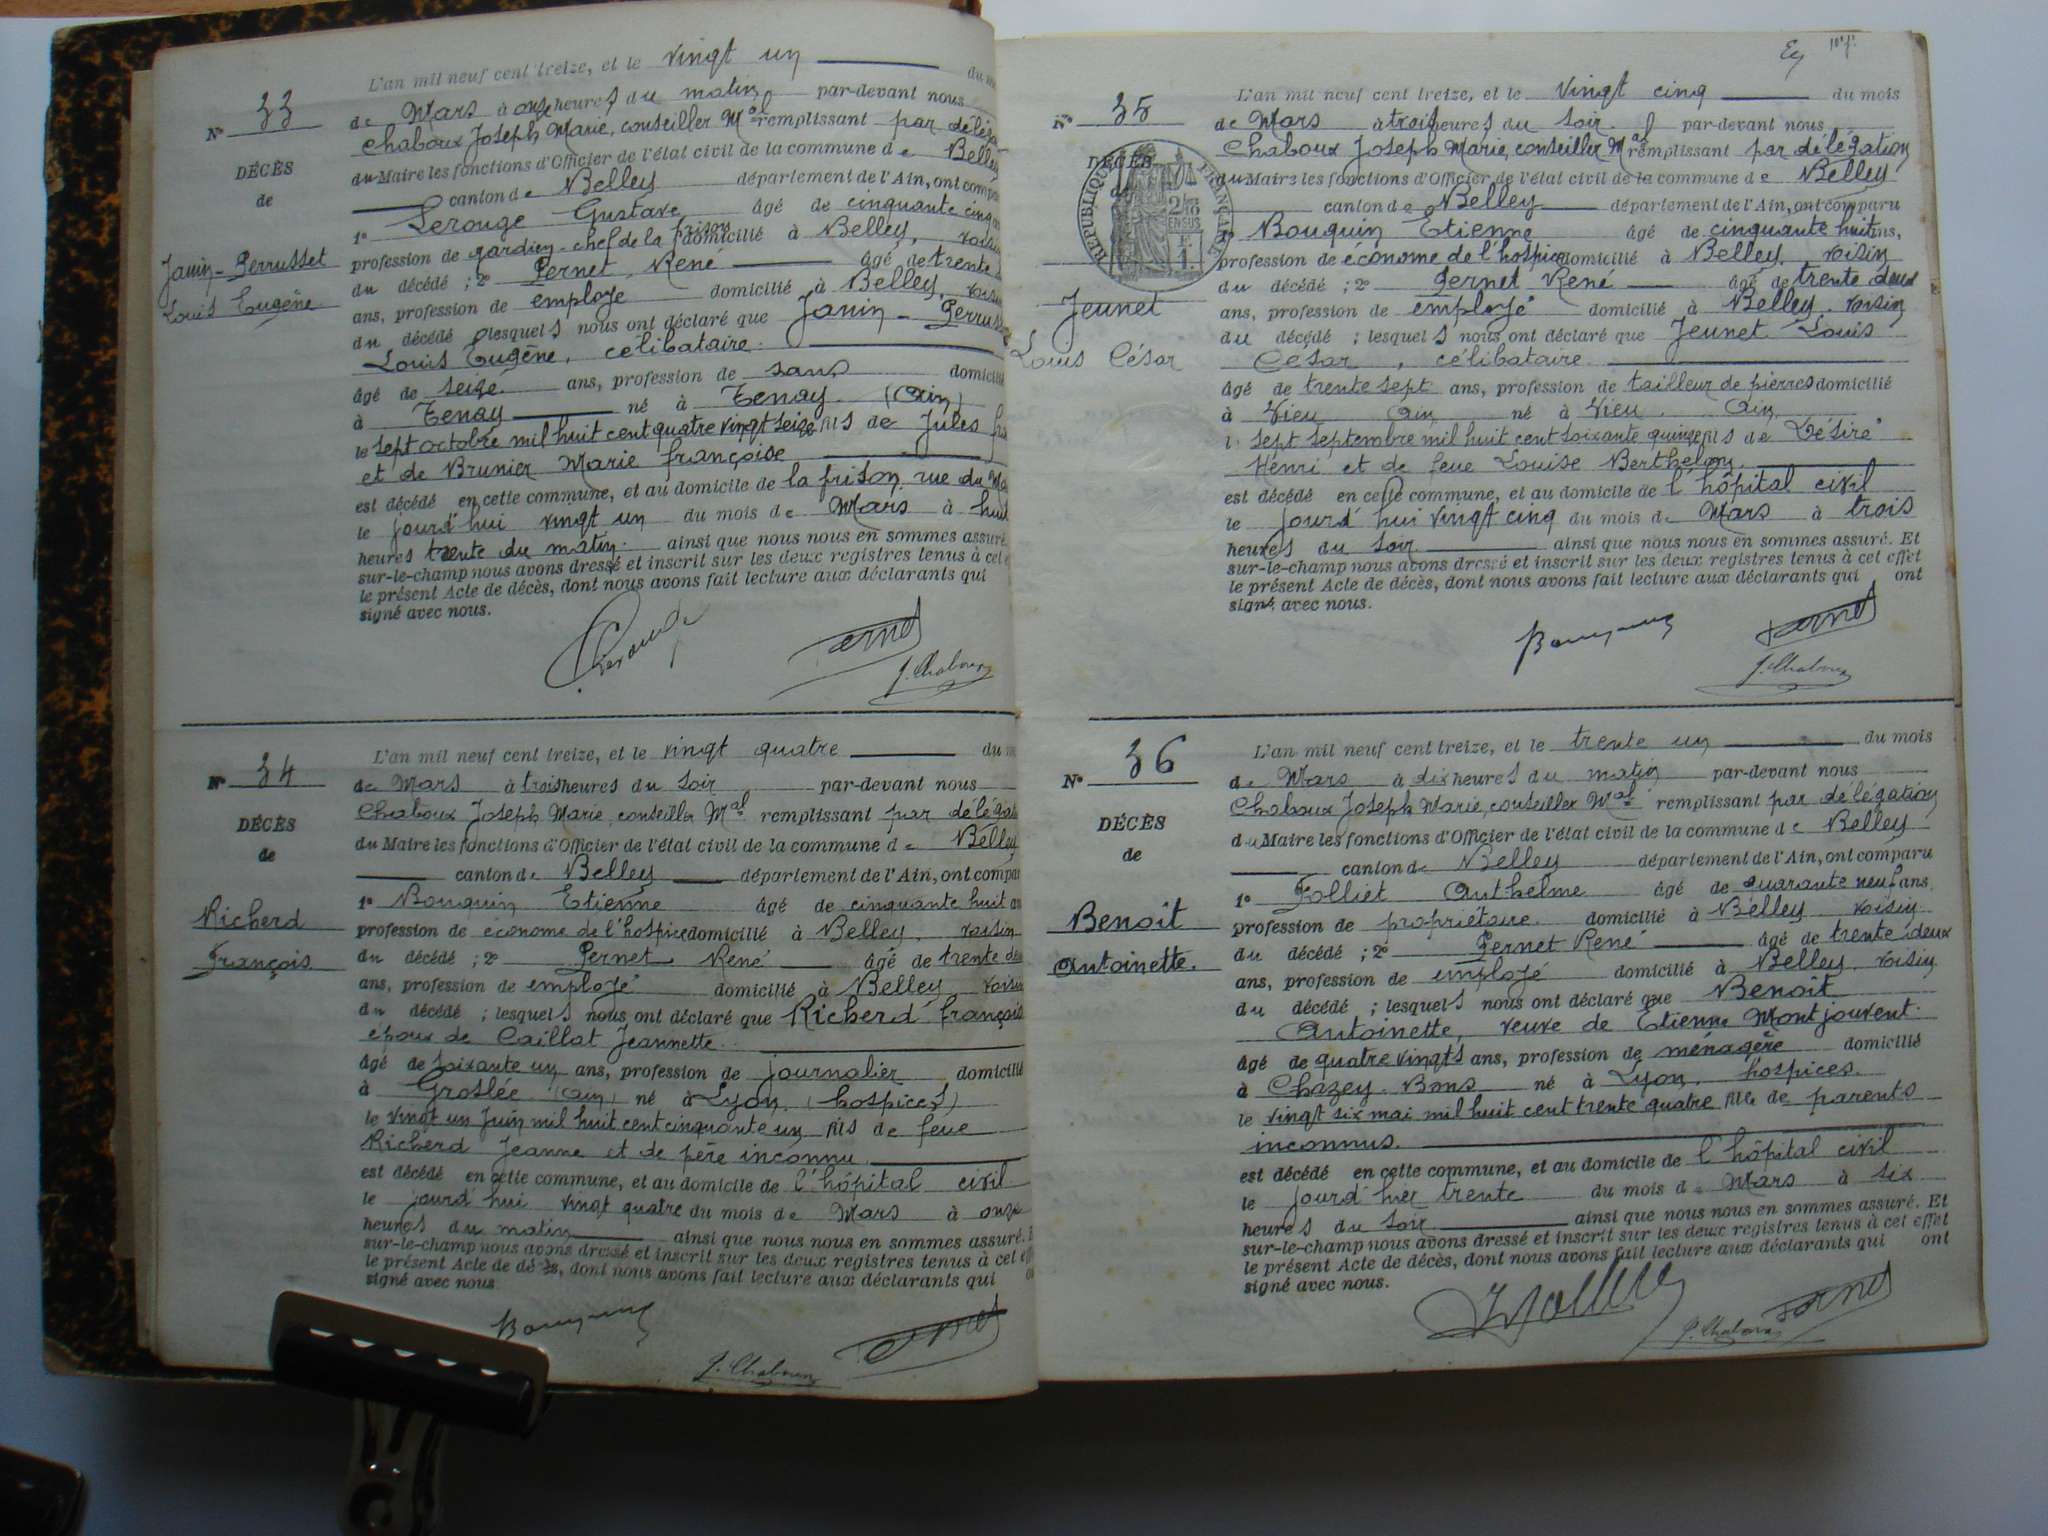 L'an mil neuf cent treize, et le vingt un du
N° 33
de Mars à onze heures du matin par-devant nous
Chaboux Joseph Marie, conseiller Mal remplissant par
DÉCÈS
du Maire les fonctions d'Officier de l'état civil de la commune de Belley
de
canton de Belley département de l'Ain, ont
1° Lerouge Gustave âgé de cinquante cinq
Janin-Perrusset
profession de gardien-chef de la prison domicilié à Belley, voisin
Louis Eugène
du décédé ; 2° Pernet René âgé de trente
ans, profession de employé domicilié à Belley, voisin
du décédé lesquels nous ont déclaré que Janin-
Louis Eugène, célibataire.
âgé de seize ans, profession de sans domicilié
à Tenay né à Tenay (Ain)
le sept octobre mil huit cent quatre vingt seize fils de Jules
et de Brunier Marie françoise
est décédé en cette commune, et au domicile de la prison rue du
le jourd'hui vingt un du mois de Mars à huit
heures trente du matin. ainsi que nous nous en sommes assuré.
sur-le-champ nous avons dressé et inscrit sur les deux registres tenus à cet
le présent Acte de décès, dont nous avons fait lecture aux déclarants qui
signé avec nous.
Pernet
J. Chaboux
L'an mil neuf cent treize, et le vingt quatre du
N° 34
de Mars à trois heures du soir par-devant nous
Chaboux Joseph Marie, conseiller Mal remplissant par
DÉCÈS
du Maire les fonctions d'Officier de l'état civil de la commune de Belley
de
canton de Belley département de l'Ain, ont
1° Bouquin Etienne âgé de cinquante huit
Richerd
profession de économe de l'hospice domicilié à Belley, voisin
François
du décédé ; 2° Pernet René âgé de trente
ans, profession de employé domicilié à Belley, voisin
du décédé ; lesquels nous ont déclaré que Richerd françois
époux de Caillat Jeannette.
âgé de soixante un ans, profession de journalier domicilié
à Groslée (Ain) né à Lyon (hospices)
le vingt un Juin mil huit cent cinquante un fils de feue
Richerd Jeanne et de père inconnu.
est décédé en cette commune, et au domicile de l'hôpital civil
le jourd'hui vingt quatre du mois de Mars à onze
heures du matin ainsi que nous nous en sommes assuré.
sur-le-champ nous avons dressé et inscrit sur les deux registres tenus à cet
le présent Acte de décès, dont nous avons fait lecture aux déclarants qui
signé avec nous.
Bouquin
Pernet
J. Chaboux
L'an mil neuf cent treize, et le vingt cinq du mois
N° 35
de Mars à trois heures du soir. par-devant nous
Chaboux Joseph Marie, conseiller Mal remplissant par délégation
DÉCÈS
du Maire les fonctions d'Officier de l'état civil de la commune de Belley
RÉPUBLIQUE FRANÇAISE
canton de Belley département de l'Ain, ont comparu
1° Bouquin Etienne âgé de cinquante huit ans,
profession de économe de l'hospice domicilié à Belley, voisin
du décédé ; 2° Pernet René âgé de trente deux
Jeunet
ans, profession de employé domicilié à Belley, voisin
du décédé ; lesquels nous ont déclaré que Jeunet Louis
Louis César
César, célibataire
âgé de trente sept ans, profession de tailleur de pierres domicilié
à Vieu Ain né à Vieu Ain
le sept septembre mil huit cent soixante quinze fils de Désiré
Henri et de feue Louise Berthelon.
est décédé en cette commune, et au domicile de l'hôpital civil
le jourd'hui vingt cinq du mois de Mars à trois
heures du soir. ainsi que nous nous en sommes assuré. Et
sur-le-champ nous avons dressé et inscrit sur les deux registres tenus à cet effet
le présent Acte de décès, dont nous avons fait lecture aux déclarants qui ont
signé avec nous.
Bouquin
Pernet
J. Chaboux
L'an mil neuf cent treize, et le trente un du mois
N° 36
de Mars à dix heures du matin par-devant nous
Chaboux Joseph Marie, conseiller Mal remplissant par délégation
DÉCÈS
du Maire les fonctions d'Officier de l'état civil de la commune de Belley
de
canton de Belley département de l'Ain, ont comparu
1° Folliet Anthelme âgé de quarante neuf ans,
Benoit
profession de propriétaire domicilié à Belley voisin
Antoinette.
du décédé ; 2° Pernet René âgé de trente deux
ans, profession de employé domicilié à Belley, voisin
du décédé ; lesquels nous ont déclaré que Benoit
Antoinette, veuve de Etienne Montjouvent.
âgé de quatre vingts ans, profession de ménagère domicilié
à Chazey-Bons né à Lyon, hospices.
le vingt six mai mil huit cent trente quatre fille de parents
inconnus.
est décédé en cette commune, et au domicile de l'hôpital civil
le jourd'hier trente du mois de Mars à six
heures du soir ainsi que nous nous en sommes assuré. Et
sur-le-champ nous avons dressé et inscrit sur les deux registres tenus à cet effet
le présent Acte de décès, dont nous avons fait lecture aux déclarants qui ont
signé avec nous.
Folliet
Pernet
J. Chaboux